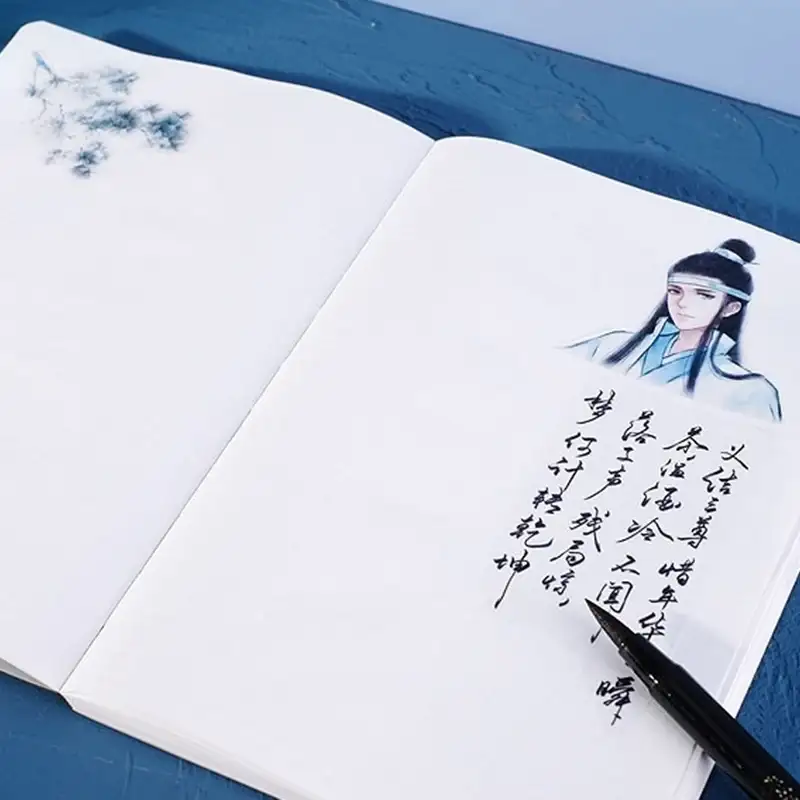 义结三尊惜年华 瞬
茶温酒冷不闻
落子声残局惊，
梦何计转乾坤